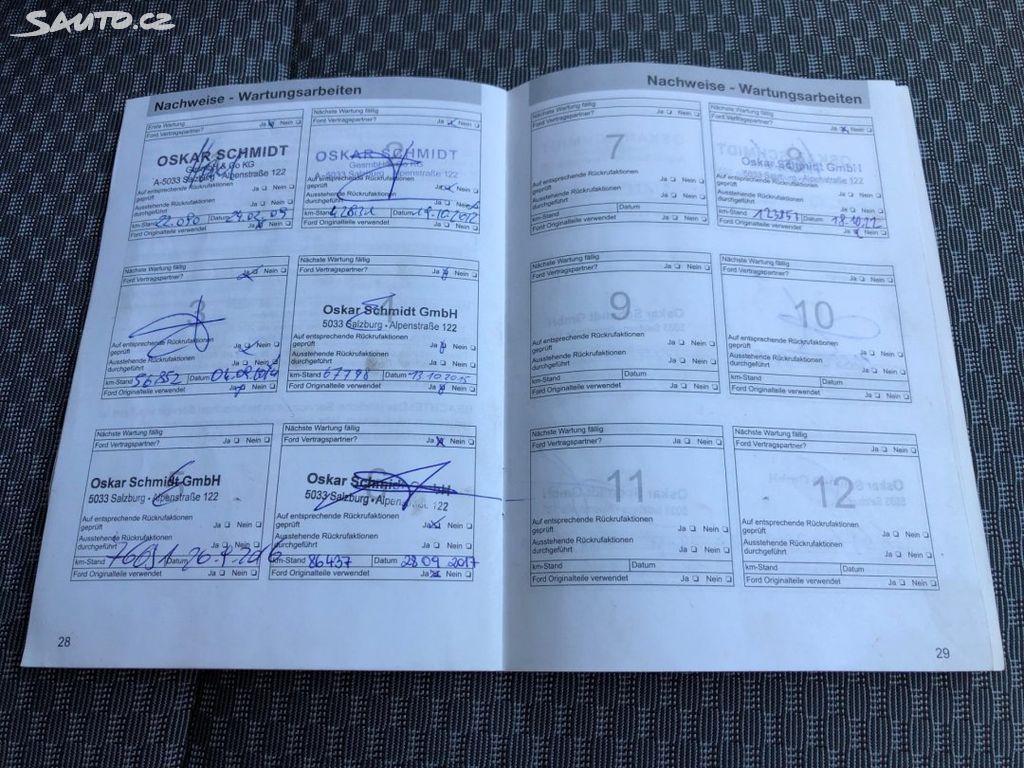 SAUTO.CZ
Nachweise - Wartungsarbeiten
Erste Wartung
Ford Vertragspartner? Ja Nein
OSKAR SCHMIDT
& Co KG
A-5033 Salzburg - Alpenstraße 122
Auf entsprechende Rückrufaktionen
geprüft Ja Nein
Ausstehende Rückrufaktionen
durchgeführt Ja Nein
km-Stand 22.090 Datum 24.02.09
Ford Originalteile verwendet Ja Nein
Nächste Wartung fällig
Ford Vertragspartner? Ja Nein
2
OSKAR SCHMIDT
A-5033 Salzburg - Alpenstraße 122
Auf entsprechende Rückrufaktionen
geprüft Ja Nein
Ausstehende Rückrufaktionen
durchgeführt Ja Nein
km-Stand Datum 19.10.2012
Ford Originalteile verwendet Ja Nein
Nächste Wartung fällig
Ford Vertragspartner? Ja Nein
3
Auf entsprechende Rückrufaktionen
geprüft Ja Nein
Ausstehende Rückrufaktionen
durchgeführt Ja Nein
km-Stand 56352 Datum
Ford Originalteile verwendet Ja Nein
Nächste Wartung fällig
Ford Vertragspartner? Ja Nein
4
Oskar Schmidt GmbH
5033 Salzburg - Alpenstraße 122
Auf entsprechende Rückrufaktionen
geprüft Ja Nein
Ausstehende Rückrufaktionen
durchgeführt Ja Nein
km-Stand 67798 Datum 13.10.2015
Ford Originalteile verwendet Ja Nein
Nächste Wartung fällig
Ford Vertragspartner? Ja Nein
5
Oskar Schmidt GmbH
5033 Salzburg - Alpenstraße 122
Auf entsprechende Rückrufaktionen
geprüft Ja Nein
Ausstehende Rückrufaktionen
durchgeführt Ja Nein
km-Stand Datum
Ford Originalteile verwendet Ja Nein
Nächste Wartung fällig
Ford Vertragspartner? Ja Nein
6
Oskar Schmidt GmbH
5033 Salzburg - Alpenstraße 122
Auf entsprechende Rückrufaktionen
geprüft Ja Nein
Ausstehende Rückrufaktionen
durchgeführt Ja Nein
km-Stand 86437 Datum 28 09 2017
Ford Originalteile verwendet Ja Nein
28
Nachweise - Wartungsarbeiten
Nächste Wartung fällig
Ford Vertragspartner? Ja Nein
7
Auf entsprechende Rückrufaktionen
geprüft Ja Nein
Ausstehende Rückrufaktionen
durchgeführt Ja Nein
km-Stand Datum
Ford Originalteile verwendet Ja Nein
Nächste Wartung fällig
Ford Vertragspartner? Ja Nein
8
Oskar Schmidt GmbH
Auf entsprechende Rückrufaktionen
geprüft Ja Nein
Ausstehende Rückrufaktionen
durchgeführt Ja Nein
km-Stand Datum
Ford Originalteile verwendet Ja Nein
Nächste Wartung fällig
Ford Vertragspartner? Ja Nein
9
Auf entsprechende Rückrufaktionen
geprüft Ja Nein
Ausstehende Rückrufaktionen
durchgeführt Ja Nein
km-Stand Datum
Ford Originalteile verwendet Ja Nein
Nächste Wartung fällig
Ford Vertragspartner? Ja Nein
10
Auf entsprechende Rückrufaktionen
geprüft Ja Nein
Ausstehende Rückrufaktionen
durchgeführt Ja Nein
km-Stand Datum
Ford Originalteile verwendet Ja Nein
Nächste Wartung fällig
Ford Vertragspartner? Ja Nein
11
Auf entsprechende Rückrufaktionen
geprüft Ja Nein
Ausstehende Rückrufaktionen
durchgeführt Ja Nein
km-Stand Datum
Ford Originalteile verwendet Ja Nein
Nächste Wartung fällig
Ford Vertragspartner? Ja Nein
12
Auf entsprechende Rückrufaktionen
geprüft Ja Nein
Ausstehende Rückrufaktionen
durchgeführt Ja Nein
km-Stand Datum
Ford Originalteile verwendet Ja Nein
29